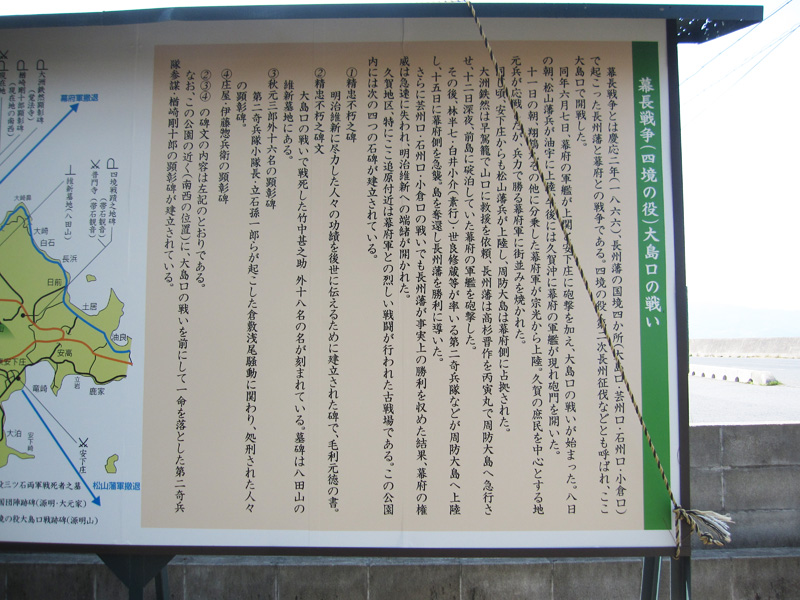 幕長戦争(四境の役)大島口の戦い
幕長戦争とは慶応二年(一八六六)、長州藩の国境四か所(大島口・芸州口・石州口・小倉口)
で起こった長州藩と幕府との戦争である。四境の役、第二次長州征伐などとも呼ばれ、ここ
大島口で開戦した。
同年六月七日、幕府の軍艦が上関、安下庄に砲撃を加え、大島口の戦いが始まった。八日
の朝、松山藩兵が油宇に上陸、午後には久賀沖に幕府の軍艦が現れ砲門を開いた。
十一日の朝、翔鶴丸その他に分乗した幕府軍が宗光から上陸。久賀の庶民を中心とする地
元兵が応戦したが、兵力で勝る幕府軍に街並みを焼かれた。
同じ頃、安下庄からも松山藩兵が上陸し、周防大島は幕府側に占拠された。
大洲鉄然は早駕籠で山口に救援を依頼、長州藩は高杉晋作を丙寅丸で周防大島へ急行さ
せ、十二日深夜、前島に碇泊していた幕府の軍艦を砲撃した。
その後、林半七・白井小介(素行)・世良修蔵等が率いる第二奇兵隊などが周防大島へ上陸
し、十五日に幕府側を急襲。島を奪還し長州藩を勝利に導いた。
さらに芸州口・石州口・小倉口の戦いでも長州藩が事実上の勝利を収めた結果、幕府の権
威は急速に失われ、明治維新への端緒が開かれた。
久賀地区、特にここ追原付近は幕府軍との烈しい戦闘が行われた古戦場である。この公園
内には次の四つの石碑が建立されている。
①精忠不朽之碑
明治維新に尽力した人々の功績を後世に伝えるために建立された碑で、毛利元徳の書。
②精忠不朽之碑文
大島口の戦いで戦死した竹中甚之助 外十八名の名が刻まれている。墓碑は八田山の
維新墓地にある。
③秋元三郎外十六名の顕彰碑
第二奇兵隊小隊長・立石孫一郎らが起こした倉敷浅尾騒動に関わり、処刑された人々
の顕彰碑。
④庄屋・伊藤惣兵衛の顕彰碑
②③④の碑文の内容は左記のとおりである。
なお、この公園の近く(南西の位置)に、大島口の戦いを前にして一命を落とした第二奇兵
隊参謀、楢崎剛十郎の顕彰碑が建立されている。
幕府軍撤退
大洲鉄然顕彰碑
(覚法寺)
楢崎剛十郎顕彰碑
(現在地の南西)
現在地
四境戦蹟之地碑
(帯石観音)
普門寺(帯石観音)
維新墓地(八田山)
大崎鼻
大崎
白石
長浜
日前
土居
由良
安高
安下庄
立岩
鹿家
竜崎
大泊
安下崎
安下庄
松山藩軍撤退
役三ツ石両軍戦死者之墓
団陣跡碑(源明・大元家)
境の役大島口戦跡碑(源明山)